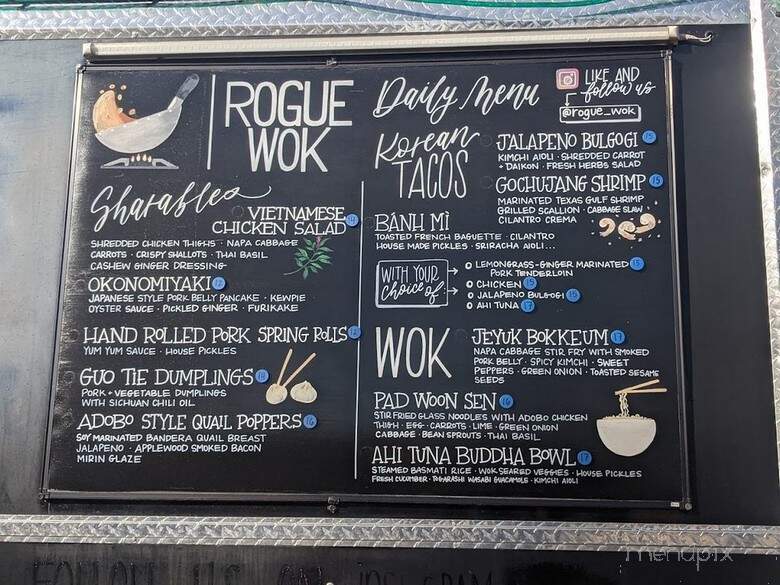 ROGUE
WOK
Sharables
VIETNAMESE
CHICKEN SALAD
SHREDDED CHICKEN THIGHS · NAPA CABBAGE
CARROTS · CRISPY SHALLOTS · THAI BASIL
CASHEW GINGER DRESSING
OKONOMIYAKI 12
JAPANESE STYLE PORK BELLY PANCAKE · KEWPIE
OYSTER SAUCE · PICKLED GINGER · FURIKAKE
HAND ROLLED PORK SPRING ROLLS 12
YUM YUM SAUCE · HOUSE PICKLES
GUO TIE DUMPLINGS
PORK + VEGETABLE DUMPLINGS
WITH SICHUAN CHILI OIL
ADOBO STYLE QUAIL POPPERS 16
SOY MARINATED BANDERA QUAIL BREAST
JALAPENO · APPLEWOOD SMOKED BACON
MIRIN GLAZE
Daily Menu
LIKE AND
follow us
@rogue_wok
Korean
TACOS
JALAPENO BULGOGI 15
KIMCHI AIOLI · SHREDDED CARROT
+ DAIKON · FRESH HERBS SALAD
GOCHUJANG SHRIMP 15
MARINATED TEXAS GULF SHRIMP
GRILLED SCALLION · CABBAGE SLAW
CILANTRO CREMA
BÁNH MÌ
TOASTED FRENCH BAGUETTE · CILANTRO
HOUSE MADE PICKLES · SRIRACHA AIOLI...
WITH YOUR
choice of:
LEMONGRASS-GINGER MARINATED 15
PORK TENDERLOIN
CHICKEN 15
JALAPENO BULGOGI 15
AHI TUNA 17
WOK
JEYUK BOKKEUM 17
NAPA CABBAGE STIR FRY WITH SMOKED
PORK BELLY · SPICY KIMCHI · SWEET
PEPPERS · GREEN ONION · TOASTED SESAME
SEEDS
PAD WOON SEN 16
STIR FRIED GLASS NOODLES WITH ADOBO CHICKEN
THIGH · EGG · CARROTS · LIME · GREEN ONION
CABBAGE · BEAN SPROUTS · THAI BASIL
AHI TUNA BUDDHA BOWL 17
STEAMED BASMATI RICE · WOK SEARED VEGGIES · HOUSE PICKLES
FRESH CUCUMBER · TOGARASHI WASABI GUACAMOLE · KIMCHI AIOLI
menupix